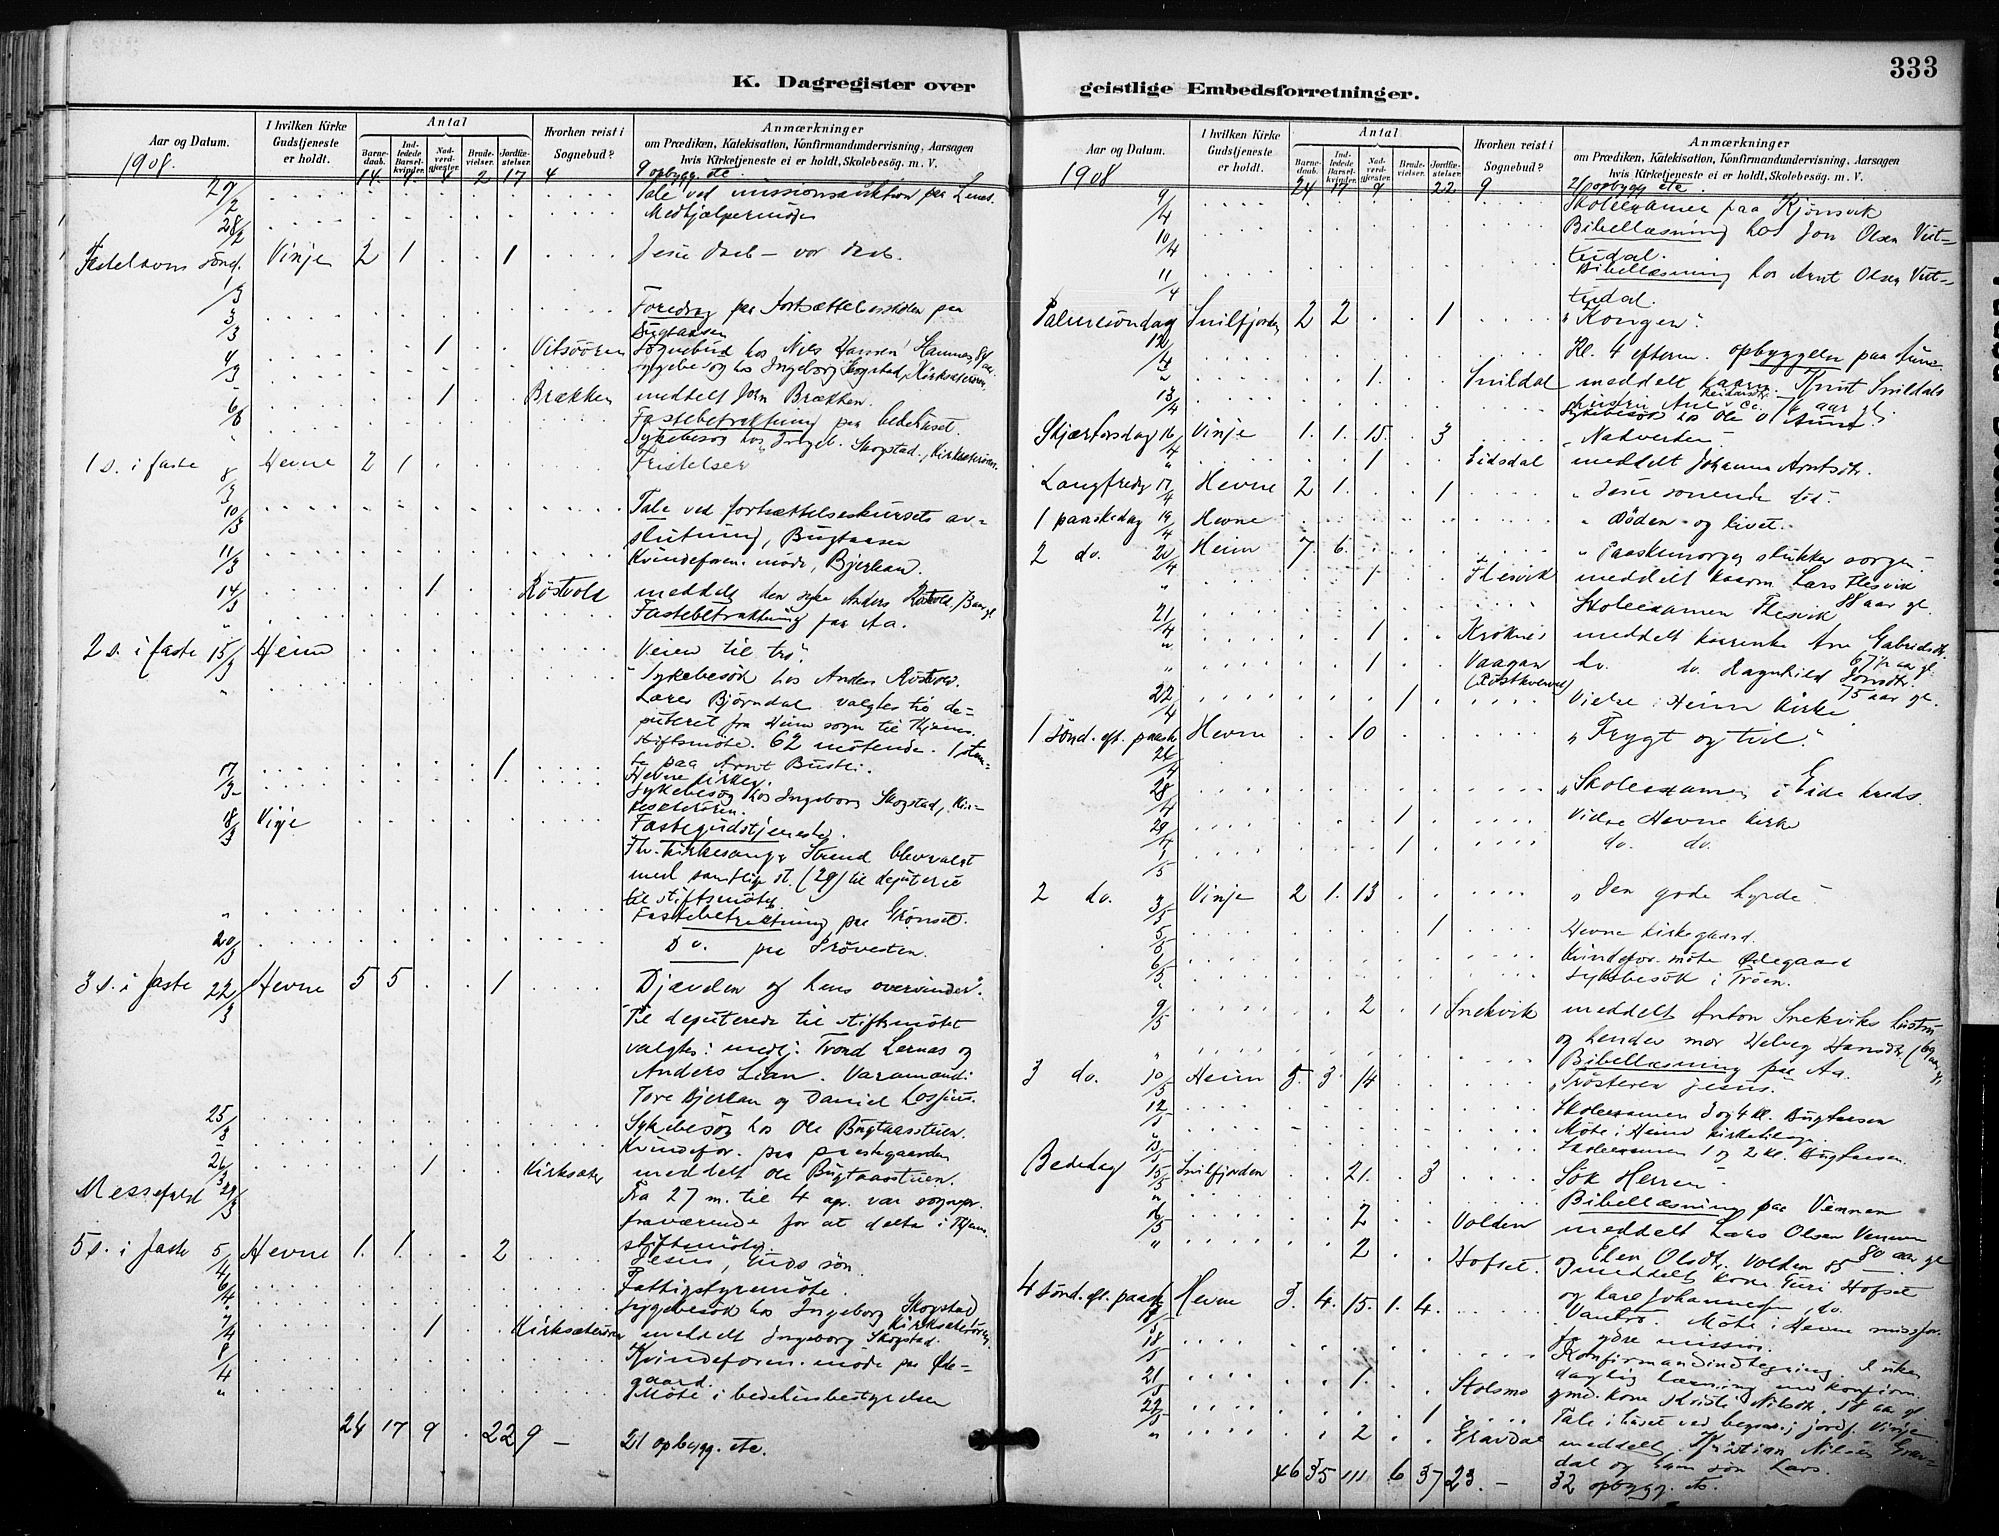 333
K. Dagregister over
geistlige Embedsforretninger.
Aar og Datum.
I hvilken Kirke Gudstjeneste er holdt.
Antal
Barnedaab.
Indledede Barselkvinder.
Nadverdgjester.
Brudevielser.
Jordfæstelser.
Hvorhen reist i Sognebud?
Anmærkninger
om Prædiken, Katekisation, Konfirmandundervisning, Aarsagen
hvis Kirketjeneste ei er holdt, Skolebesøg. m. V.
1908.
14. 2 17 4 9 opbygg. etc
27/2 Tale ved missionsauktion paa
28/2 Medhjælpermøde
Fastelavns sønd. 1/3 Vinje 2 1 1 Jesu daab – vor daab.
3/3 Foredrag paa fortsættelsesskolen paa
Bugtaasen
4/3 1 Vitsøören Sognebud hos Niels Hansen Hamnes, 84 aar
Sygebesøg hos Ingeborg Skogstad, Kirksæterøren
6/3 1 Brækken meddelt John Brækken.
" Fastebetraktning paa bedehuset.
Sykebesøg hos Ingeb. Skogstad, Kirksæterøren
1 s. i faste 8/3 Hevne 2 1 Fristelser
10/3 Tale ved fortsættelseskursets av-
slutning, Bugtaasen
11/3 Kvindeforen. møde, Bjerkan.
14/3 1 Røstvold meddelt den syke Anders
" Fastebetraktning paa Aa.
2 s. i faste 15/3 Heim "Veien til tro".
" Sykebesøk hos Anders Røstvold.
Lars Bjørndal valgtes til de-
puteret fra Heim sogn til Thjems
stiftsmøte. 62 møtende. 1 stem-
te paa Arnt Bustli.
17/3 1 Hevne kirkeg.
Sykebesøg hos Ingeborg Skogstad, Kir-
kesæterøren.
18/3 Vinje Fastegudstjeneste.
Fhv. kirkesanger Strand blev valgt
med samtlige st. (29) til deputeret
til stiftsmøtet
" Fastebetraktning paa Grønset.
20/3 Do. paa Prøvesten.
3 s. i faste 22/3 Hevne 5 5 1 Djævelen og hans overvinder".
Til deputerede til stiftsmøtet
valgtes: medhj. Trond Lernæs og
Anders Lian. Varamænd:
Tore Bjerkan og Daniel Lossius.
25/3 Sykebesøg hos Ole Bugtaasstuen.
" Kvindefor. paa præstegaarden
26/3 1 Kirksæter meddelt Ole Bugtaasstuen.
Messefald 29/3 Fra 27 m. til 4 apr. var sognepr.
fraværende for at delta i Thjems
stiftsmøte
5 s. i faste 5/4 Hevne 1. 1. 2 Jesus, Guds søn.
6/4 Fattigstyremøte.
" Sygebesøk hos Ingeborg Skogstad
Kirksæterøren
7/4 1 Kirksæterøren meddelt Ingeborg Skogstad.
8/4 Kvindeforen. møde paa Øde-
gaard.
" Møte i bedehusbestyrelsen
24 17 9 . 22 9 – 21 opbygg. etc.
Aar og Datum.
I hvilken Kirke Gudstjeneste er holdt.
Antal
Barnedaab.
Indledede Barselkvinder.
Nadverdgjester.
Brudevielser.
Jordfæstelser.
Hvorhen reist i Sognebud?
Anmærkninger
om Prædiken, Katekisation, Konfirmandundervisning, Aarsagen
hvis Kirketjeneste ei er holdt, Skolebesøg. m. V.
1908
24 17 9 22 9 21 opbygg etc.
9/4 Skoleexamen paa Kjønsvik
10/4 Bibellæsning hos Jon Olsen Vut-
tudal.
11/4 Bibellæsning hos Arnt Olsen Vut-
tudal.
Palmesøndag 12/4 Snilfjorden 2 2 1 "Kongen".
" Kl. 4 efterm. opbyggelse paa
13/4 1. Snildal meddelt kaarm. Knut Snildals
Skjærtorsdag 16/4 Vinje 1. 1. 15. 3 "Nadverden"
" 1 Eidsdal meddelt Johanna Arntsdtr.
Langfredag 17/4 Hevne 2 1. 1 "Jesu sonende død."
1 paaskedag 19/4 Hevne "Døden og livet.
2 do. 20/4 Heim 7 6. "Paaskemorgen slukker sorgen
" 1 Flesvik meddelt kaarm Lars Flesvik
88 aar gl.
21/4 Skoleexamen Flesvik
" 1 Kroknes meddelt
" 1 Vaagan do. do. Ragnhild Jonsdtr.
75 aar gl.
22/4 1 Vielse i Heim kirke
1 sønd. eft. paaske 26/4 Hevne 10 "Frygt og tvil."
28/4 "Skoleexamen i Eide kreds.
29/4 1 Vielse Hevne kirke
1/5 1. do. do.
2 do. 3/5 Vinje 2 1. 13 "Den gode hyrde"
5/5 1 Hevne kirkegaard.
6/5 Kvindefor. møte Ødegaard
" Sykebesøk i Trøen.
9/5 2 Snekvik meddelt Anton Snekviks hustru
og hendes mor Helveg Hansdtr.
" Bibellæsning paa Aa.
3 do. 10/5 Heim 5. 3. 14 "Trøsteren Jesus."
12/5 Skoleexamen 3 og 4 kl. Bugtaasen
" Møte i Heim kirketilsyn.
13/5 Skoleexamen 1 og 2 kl. Bugtaasen.
Bededag 15/5 Snilfjorden 21. 3 Søk Herren
" Bibellæsning paa Vennen
16/5 2 Volden meddelt Lars Olsen Vennen
80 aar gl
og Ellen Olsdtr. Volden 85
" 2 Hofset. meddelt kone Guri Hofset
og Kare Johannesen do.
4 sønd. eft. paaske 17/5 Hevne 3. 4. 15. 1. 4. Vantro. Møte i Hevne missfor.
for ydre mission.
18/5 Konfirmandindtegning
daglig læsning med konfirm.
21/5 1 Stolsmo gmd. kone
22/5 1 Tale i huset ved begrav. jordf. Vinje.
" 2 Gravdal meddelt Kristian Nilsen Grav-
dal og hans søn Lars.
46 35 111 6 37 23. – 32 opbygg. etc.